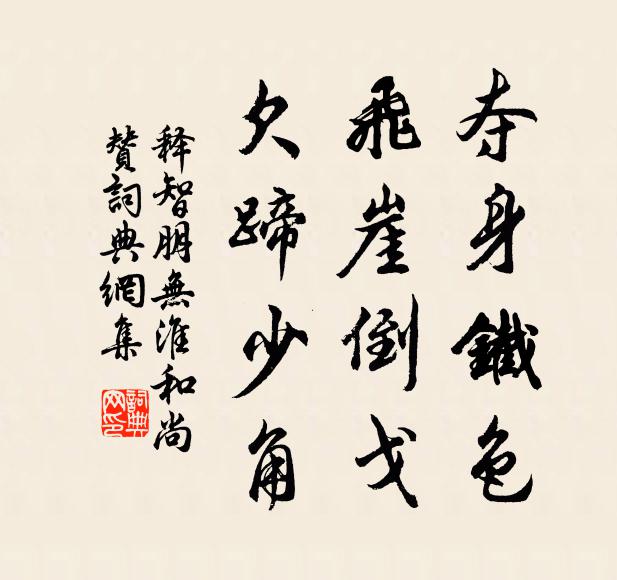 夺身鐵色
飛崖倒戈
欠蹄少角
释智朋無淮和尚
贊詞典網集
詞典
网印